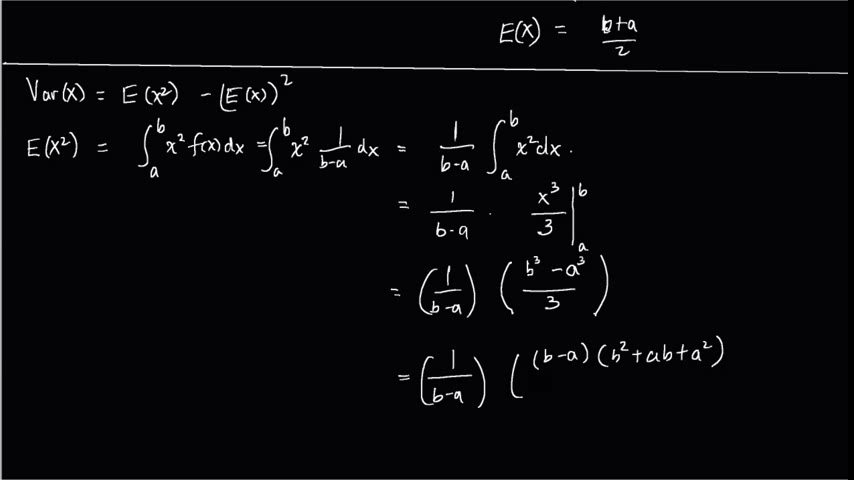 E(X) = b+a/2
Var(x) = E(x²) - (E(x))²
E(X²) = ∫_a^b x² f(x)dx = ∫_a^b x² 1/(b-a) dx = 1/(b-a) ∫_a^b x²dx.
= 1/(b-a) · x³/3 |_a^b
= (1/(b-a)) ((b³-a³)/3)
= (1/(b-a)) ((b-a)(b²+ab+a²)